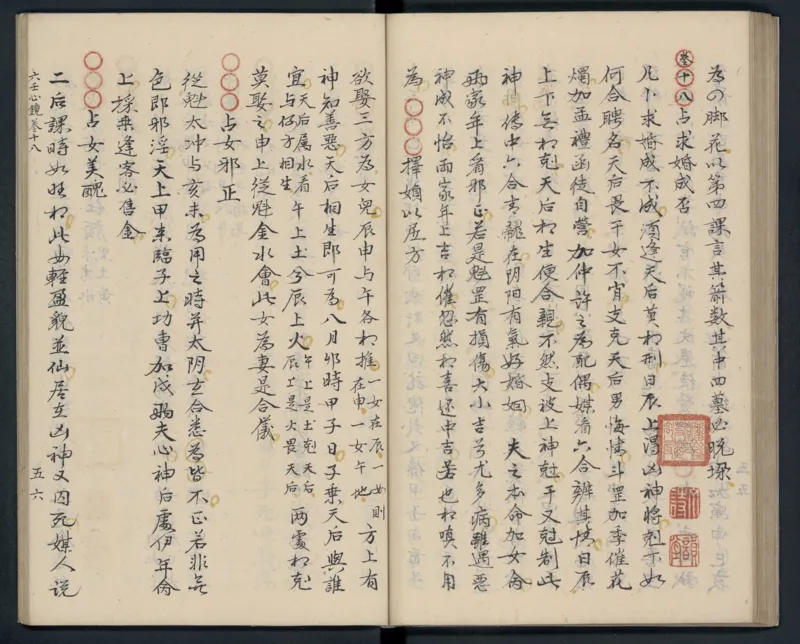 為の脚花以第四課言其箭数其中四墓必晩㻔
卷十八
占求婚成否
凡卜求婚成不成須逢天后莫相刑日辰上渴凶神將剋下如
何合聘名天后畏干女不肯支克天后男悔情斗罡加季催花
燭加孟禮函徒自營加仲許之為配偶媒看六合辨其情日辰
上下无相剋天后相生便合親不然支被上神剋干又剋制此
神傳中六合青龍在阴阳有氣好婚姻夫之本命加女命
兩家年上看邪正若是魁罡有損傷大小吉兮尤多病雖遇惡
神成不怡兩家年上吉相催忽然相喜还中吉若也相嗔不用
為
擇婚以居方
欲娶三方為女兒辰申与午各相推一女在辰一女在申一女午地則方上有
神知善惡天后相生即可為八月卯時甲子日子乗天后與誰
宜天后属水看与何方相生午上土兮辰上火午上是土克天后辰上是火畏天后兩處相克
莫娶之申上從魁金水會此女為妻是合儀
占女邪正
從魁太冲与亥未為用之時并太阴玄合悉為皆不正若非无
色即邪淫天上甲未臨子上功曹加戌弱夫心神后處伊年命
上採乗逢客必售金
占女美醜
二后課時如旺相此女輕盈貌並仙居在凶神又囚死媒人说
六壬心鏡卷十八
五六